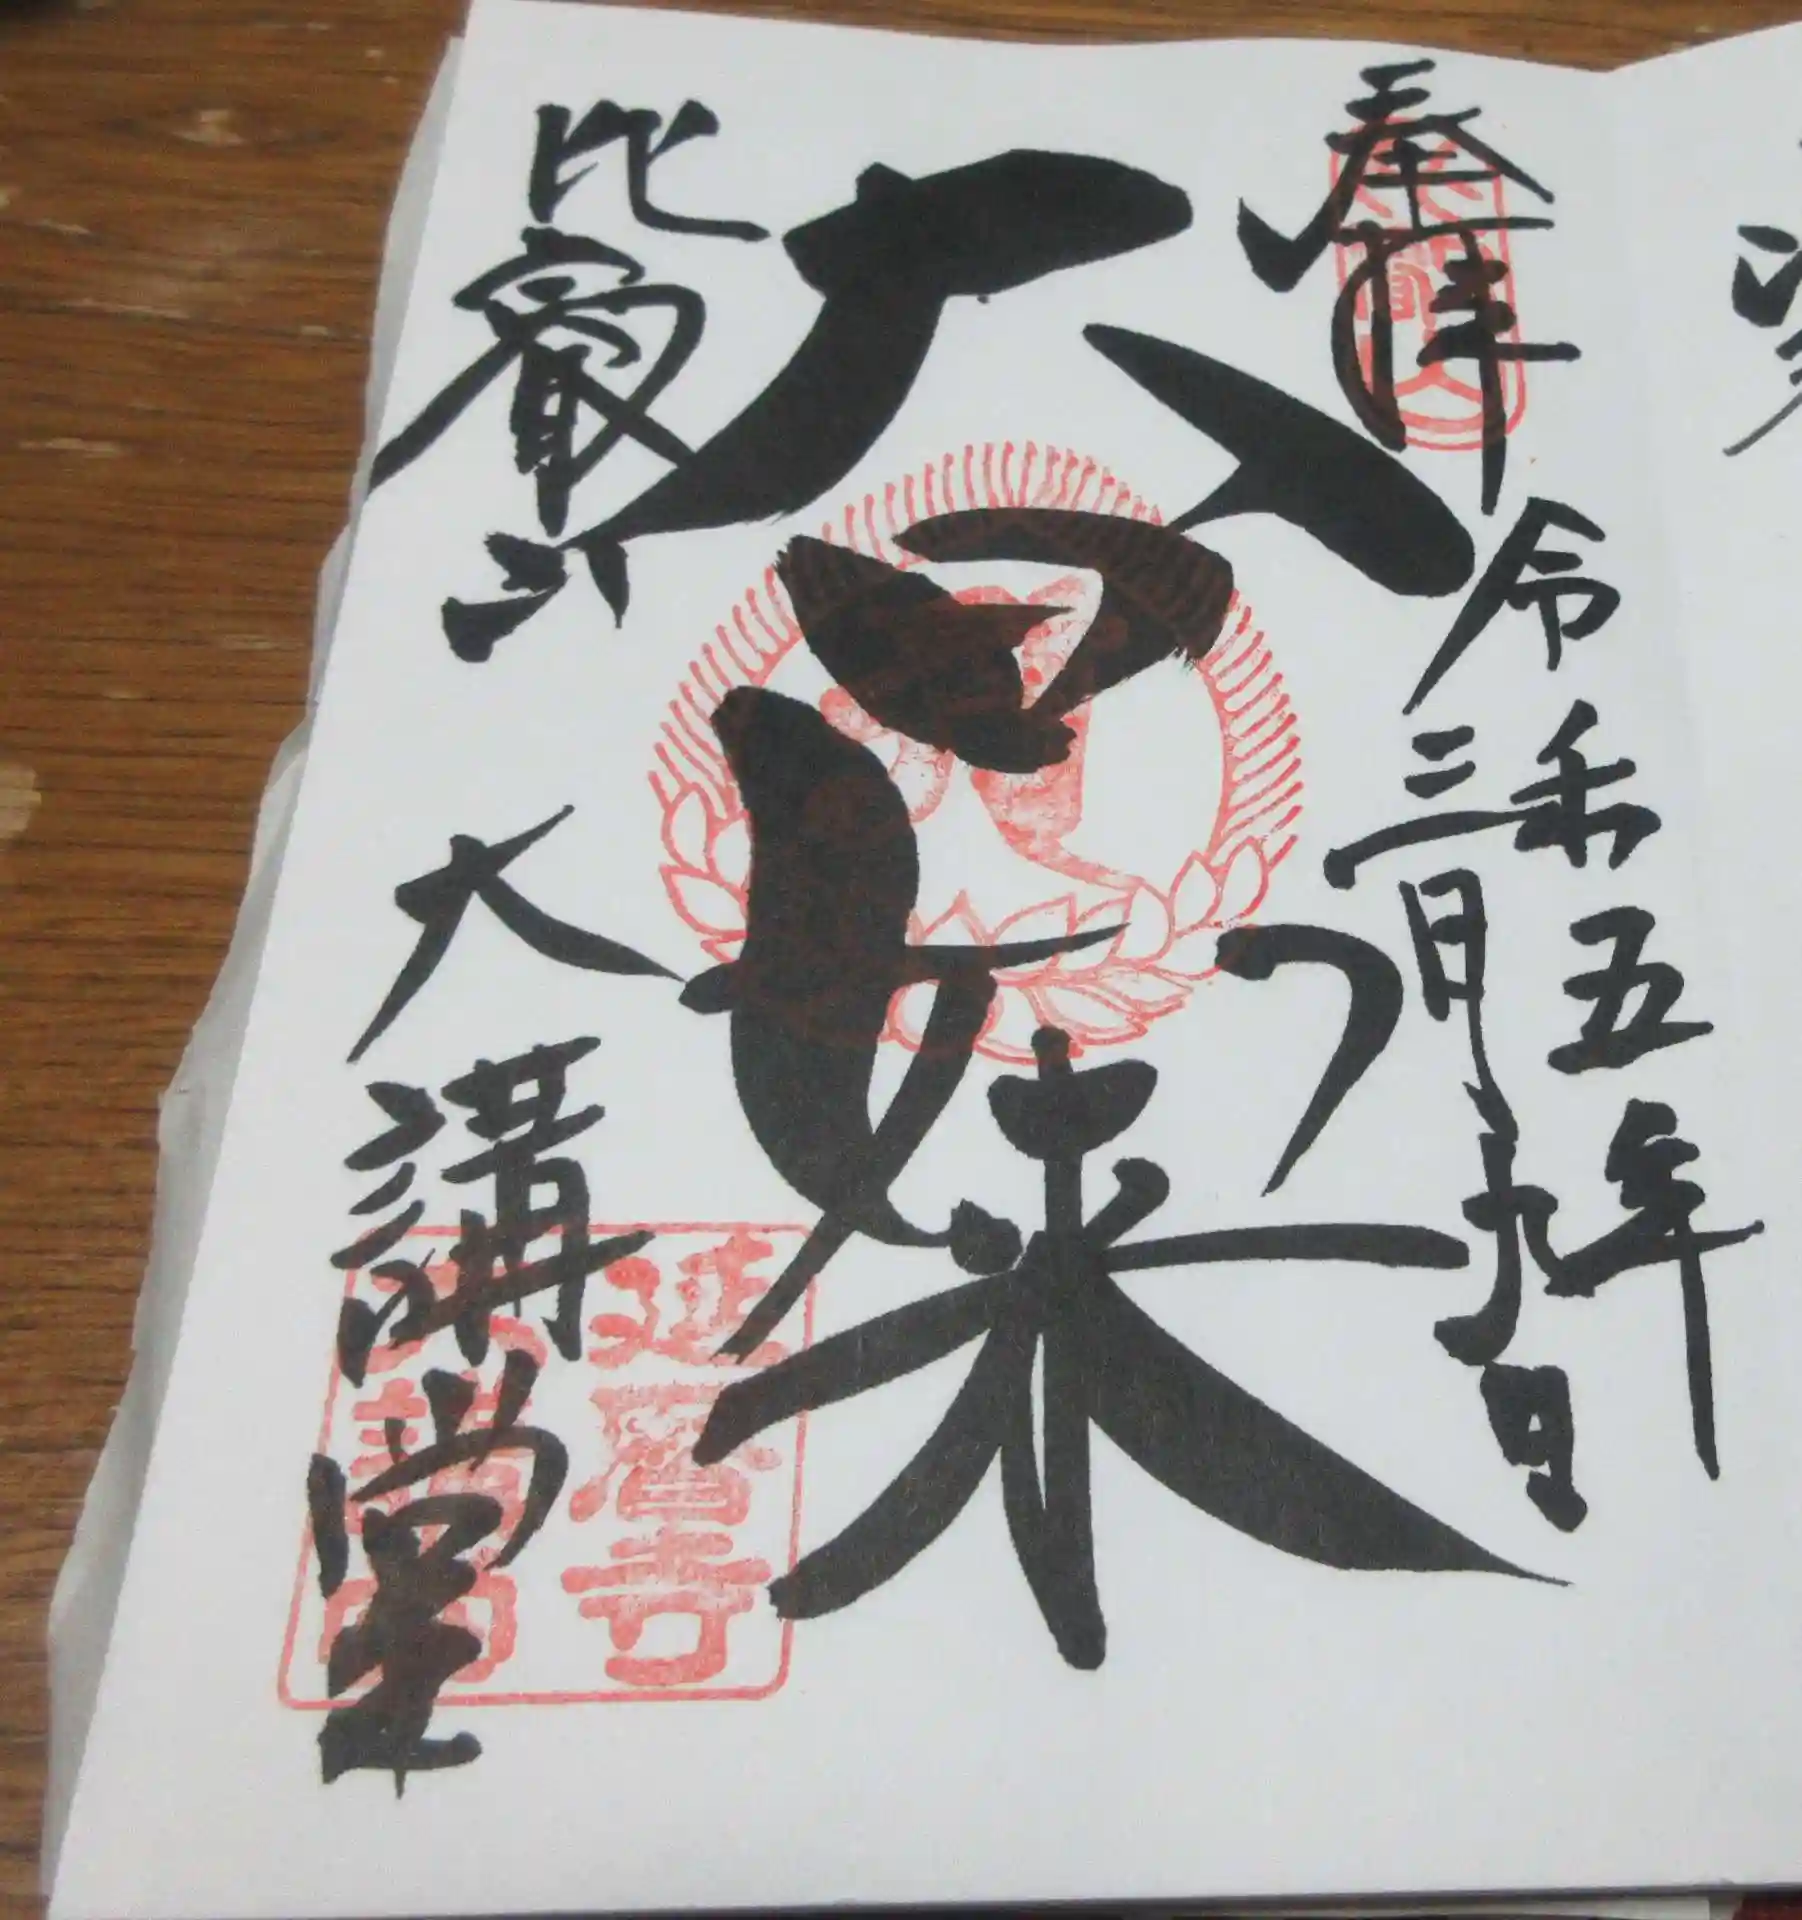 奉拝
令和五年
三月九日
大日如来
比叡山
大講堂
延暦寺